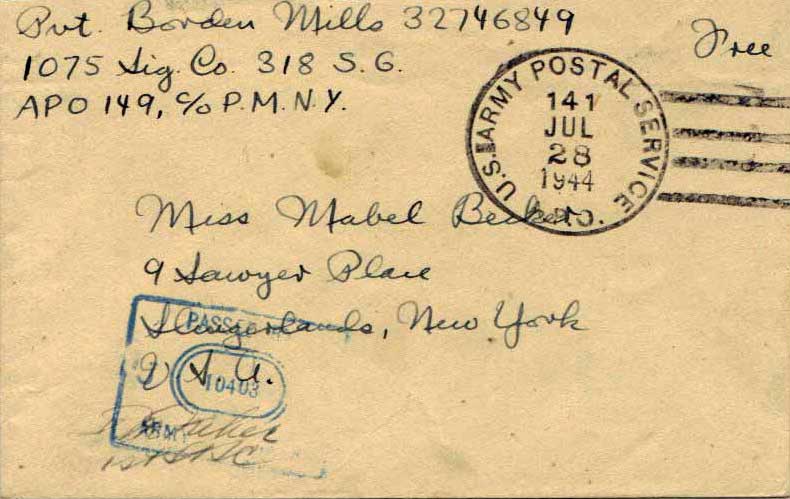 Pvt. Borden Mills 32746849
1075 Sig. Co. 318 S. G.
APO 149, c/o P.M. N.Y.
Free
U.S. ARMY POSTAL SERVICE
A.P.O.
141
JUL
28
1944
Miss Mabel Becker
9 Sawyer Place
Slingerlands, New York
U. S. A.
PASSED
10403
ARMY